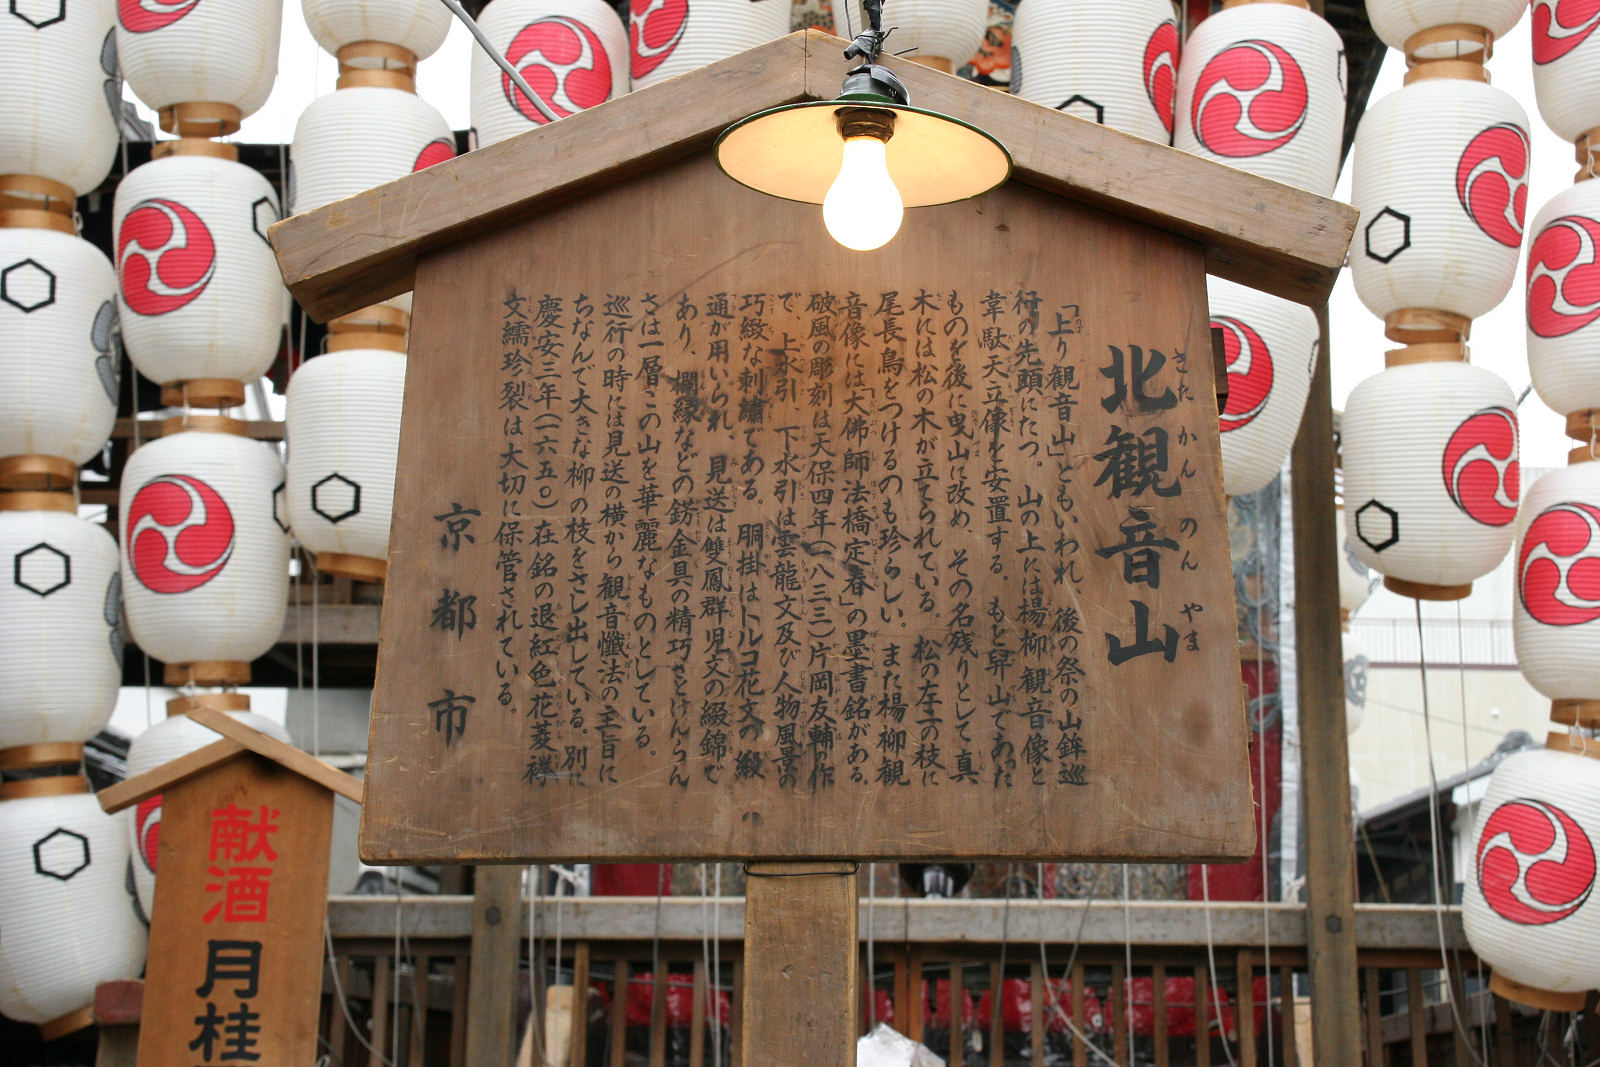 北観音山
きた かん のん やま
「上り観音山」ともいわれ、後の祭の山鉾巡
行の先頭にたつ。山の上には楊柳観音像と
韋駄天立像を安置する。もと舁山であった
ものを後に曳山に改め、その名残りとして真
木には松の木が立てられている。松の左三の枝に
尾長鳥をつけるのも珍らしい。また楊柳観
音像には「大佛師法橋定春」の墨書銘がある。
破風の彫刻は天保四年(一八三三)片岡友輔の作
で、上水引、下水引は雲龍文及び人物風景の
巧緻な刺繡である。胴掛はトルコ花文の緞
通が用いられ、見送は雙鳳群児文の綴錦で
あり、欄縁などの錺金具の精巧さとけんらん
さは一層この山を華麗なものとしている。
巡行の時には見送の横から観音懺法の主旨に
ちなんで大きな柳の枝をさし出している。別に
慶安三年(一六五〇)在銘の退紅色花菱襷
文繻珍裂は大切に保管されている。
京都市
献酒
月桂